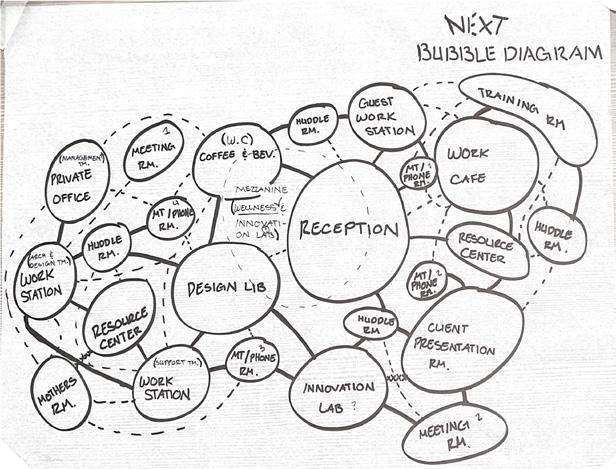 NEXT
BUBBLE DIAGRAM
TRAINING RM
GUEST
WORK
STATION
HUDDLE
RM.
1
MEETING
RM.
(W.C)
COFFEE & BEV.
WORK
CAFE
MT/1
PHONE
RM.
(MANAGEMENT
TM.)
PRIVATE
OFFICE
4
MT/PHONE
RM.
MEZZANINE
(WELLNESS &
INNOVATI-
ON LABS)
RECEPTION
HUDDLE
RM.
HUDDLE
RM.
RESOURCE
CENTER
(ARCH &
DESIGN TM.)
WORK
STATION
MT/2
PHONE
RM.
DESIGN LIB
RESOURCE
CENTER
HUDDLE
RM
CLIENT
PRESENTATION
RM.
3
MT/PHONE
RM.
(SUPPORT TM.)
WORK
STATION
MOTHERS
RM.
INNOVATION
LAB ?
MEETING 2
RM.